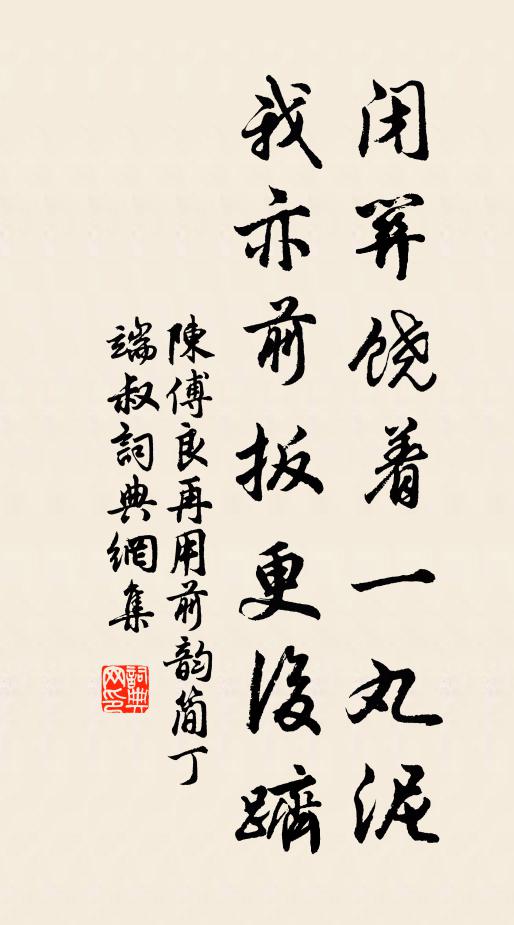 闭关饶着一丸泥
我亦前扳更後躋
陳傅良再用前韵简丁
端叔詞典網集
詞典网印